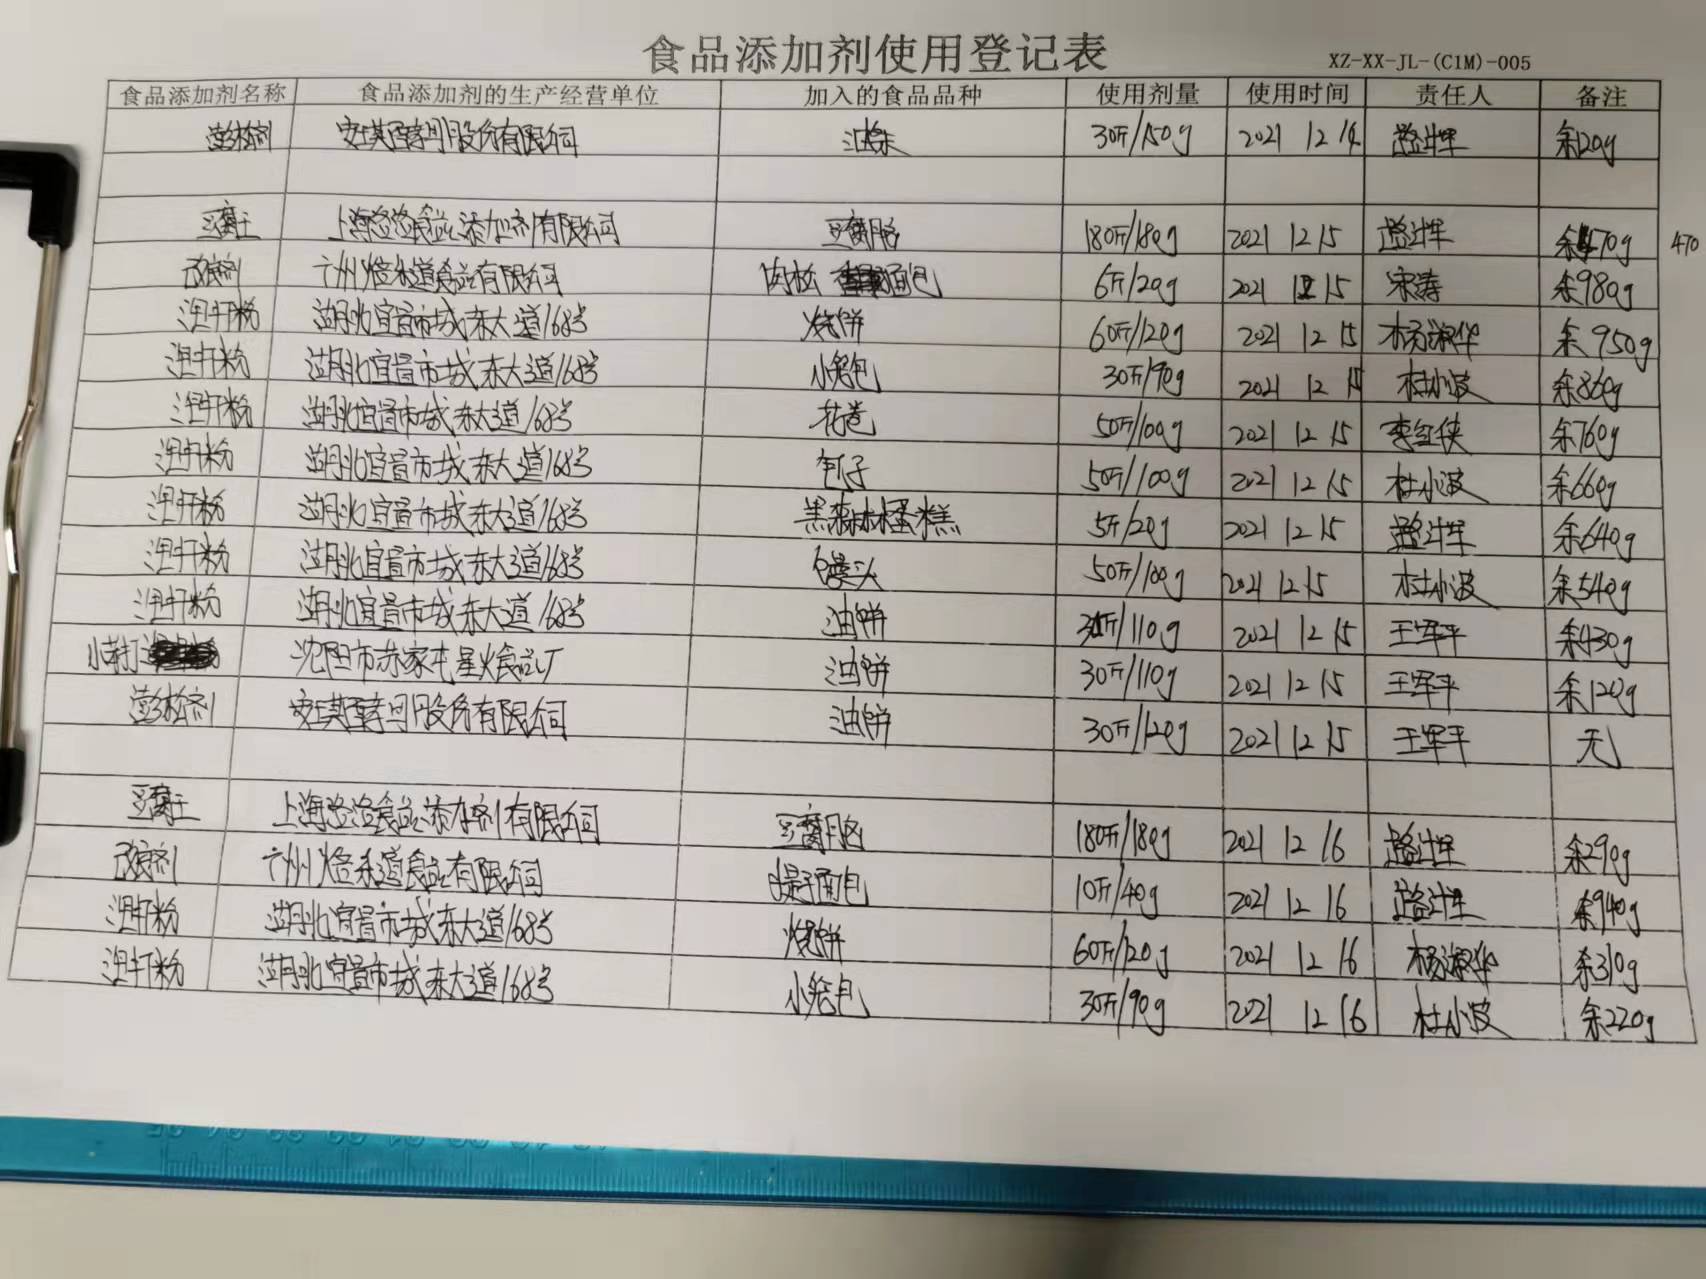 食品添加剂使用登记表
XZ-XX-JL-(C1M)-005
食品添加剂名称 食品添加剂的生产经营单位 加入的食品品种 使用剂量 使用时间 责任人 备注
澎松剂 安琪酵母股份有限公司 油条 30斤/150g 2021 12 14 路斗军 余120g
豆腐王 上海滢滢食品添加剂有限公司 豆腐脑 180斤/180g 2021 12 15 路斗军 余470g 470
改良剂 广州焙乐道食品有限公司 肉松 面包 6斤/20g 2021 12 15 宋涛 余980g
泡打粉 湖北宜昌市城东大道168号 烧饼 60斤/120g 2021 12 15 杨淑华 余950g
泡打粉 湖北宜昌市城东大道168号 小笼包 30斤/90g 2021 12 15 杜小波 余860g
泡打粉 湖北宜昌市城东大道168号 花卷 50斤/100g 2021 12 15 李红侠 余760g
泡打粉 湖北宜昌市城东大道168号 包子 50斤/100g 2021 12 15 杜小波 余660g
泡打粉 湖北宜昌市城东大道168号 黑森林蛋糕 5斤/20g 2021 12 15 路斗军 余640g
泡打粉 湖北宜昌市城东大道168号 馒头 50斤/100g 2021 12 15 杜小波 余540g
泡打粉 湖北宜昌市城东大道168号 油饼 30斤/110g 2021 12 15 王军平 余430g
小苏打 沈阳市苏家屯星火食品厂 油饼 30斤/110g 2021 12 15 王军平 余120g
澎松剂 安琪酵母股份有限公司 油饼 30斤/120g 2021 12 15 王军平 无
豆腐王 上海滢滢食品添加剂有限公司 豆腐脑 180斤/180g 2021 12 16 路斗军 余290g
改良剂 广州焙乐道食品有限公司 提子面包 10斤/40g 2021 12 16 路斗军 余940g
泡打粉 湖北宜昌市城东大道168号 烧饼 60斤/120g 2021 12 16 杨淑华 余310g
泡打粉 湖北宜昌市城东大道168号 小笼包 30斤/90g 2021 12 16 杜小波 余220g